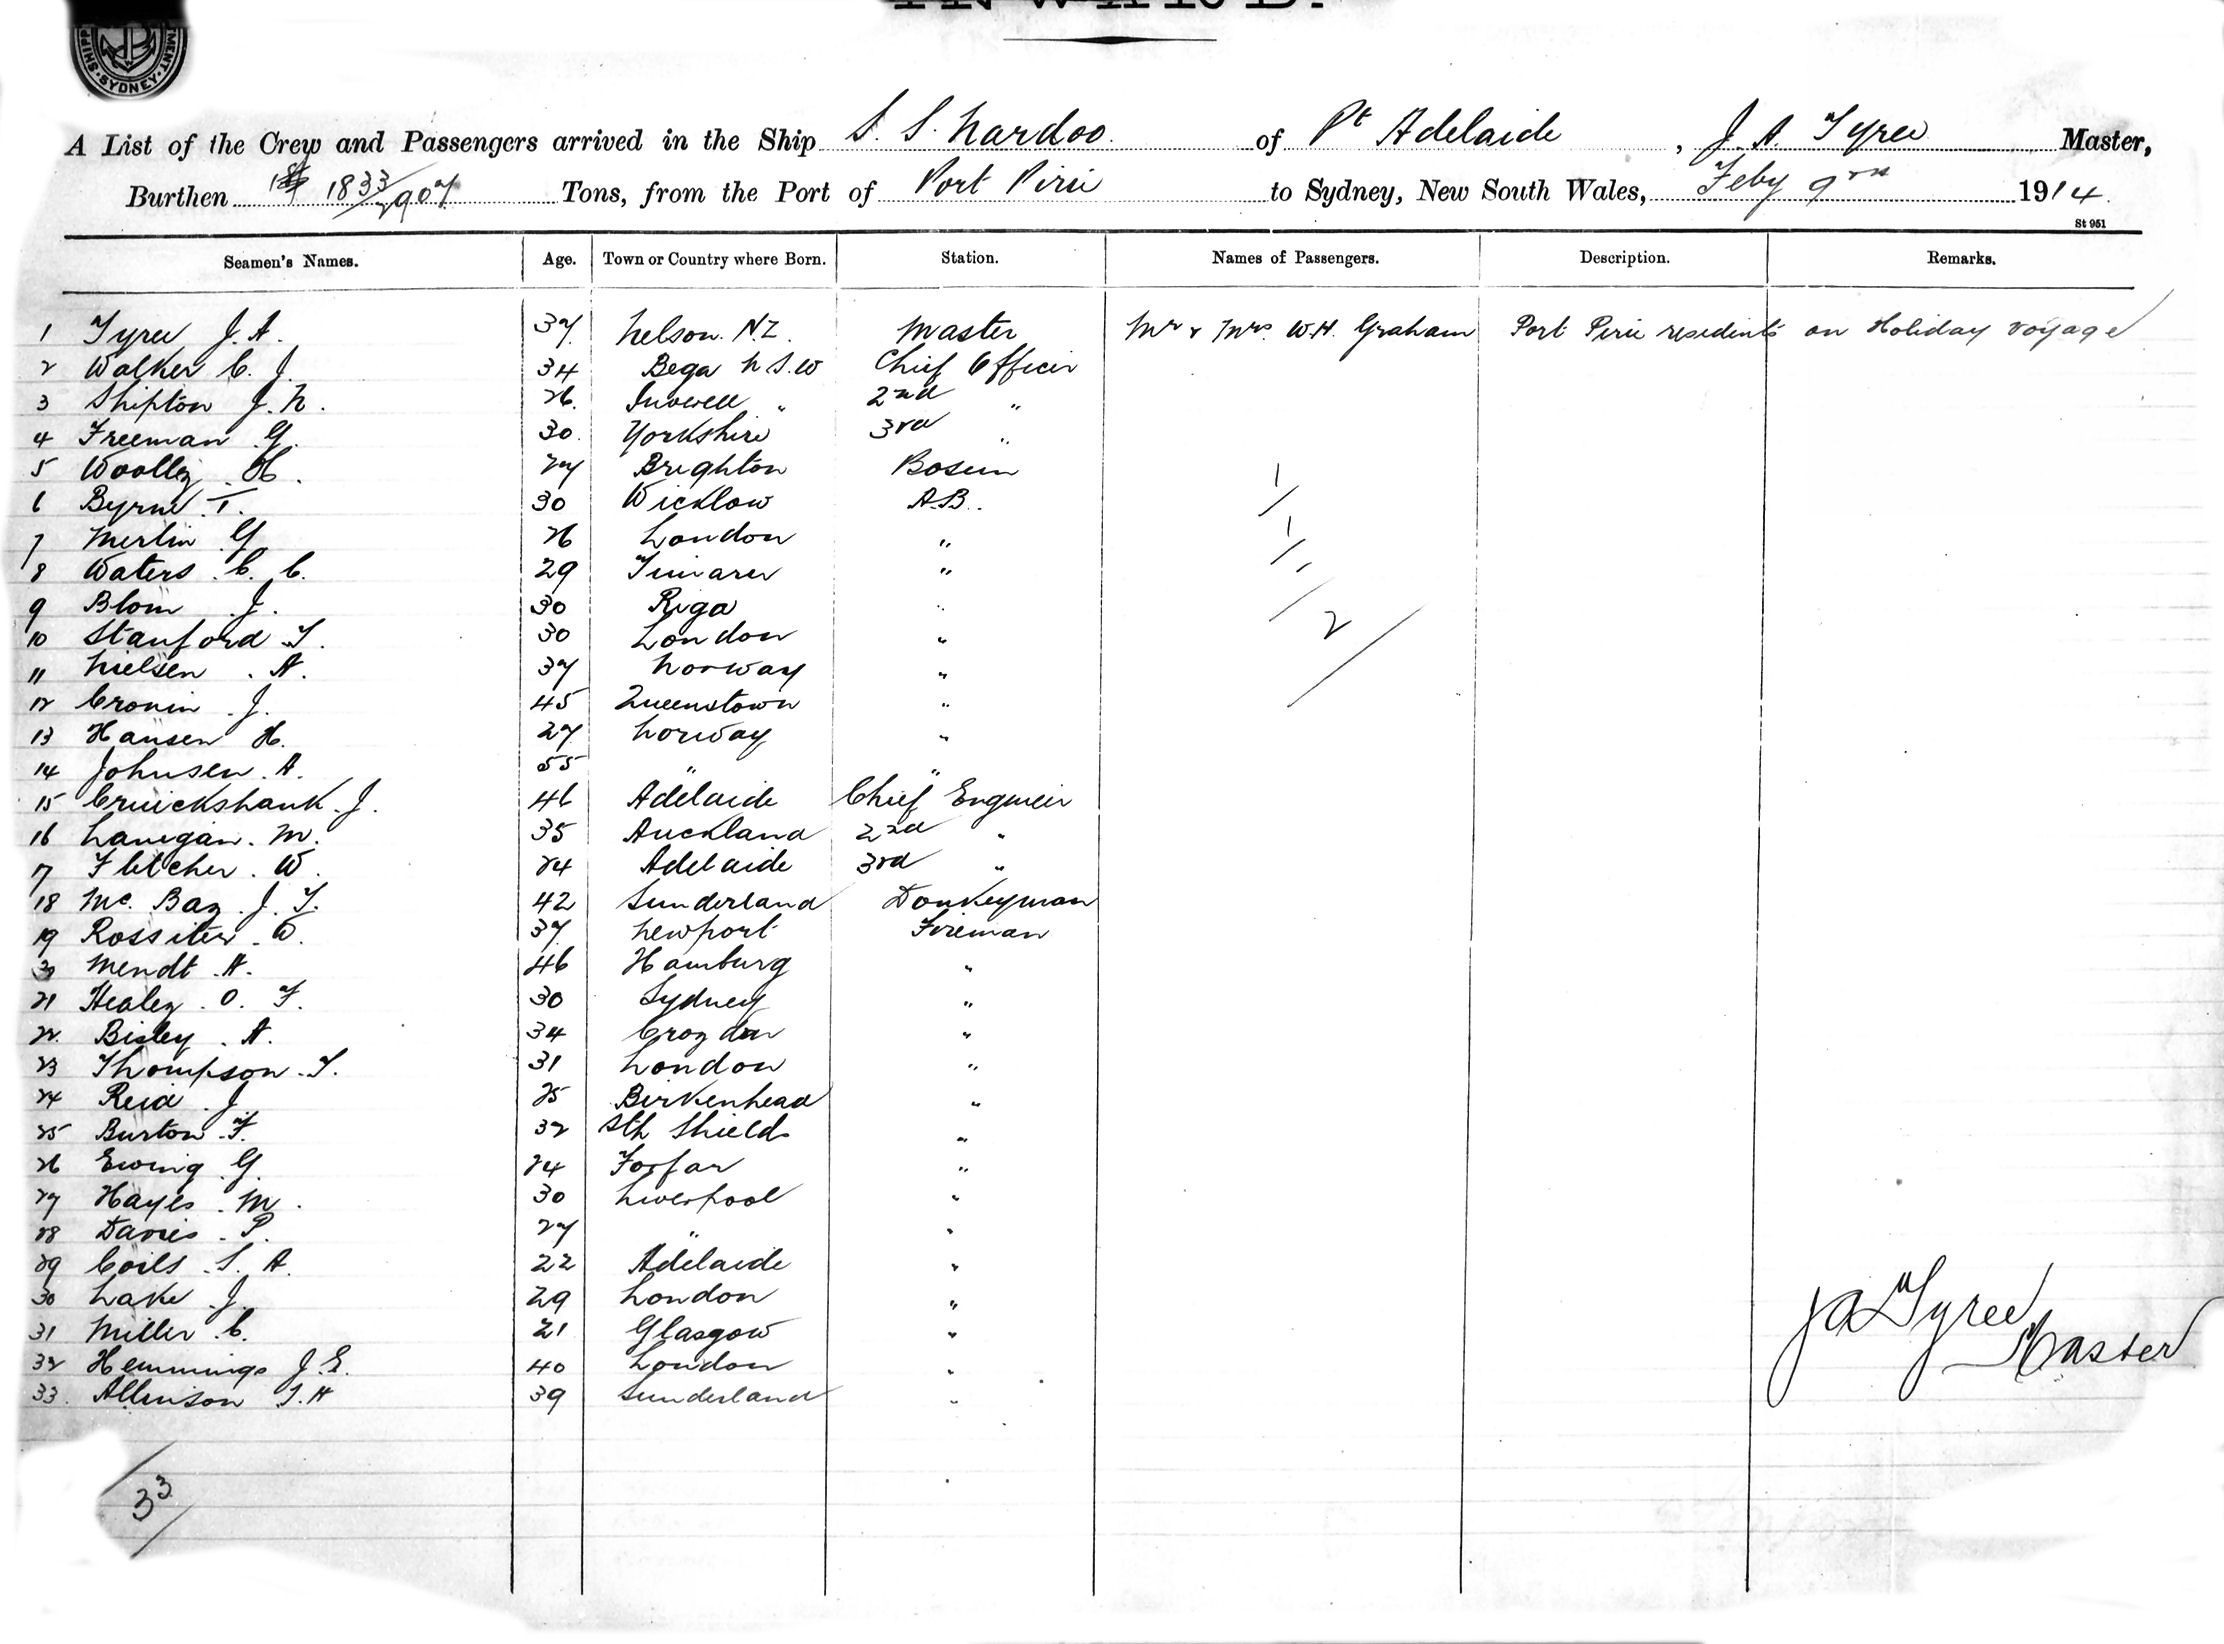 INWARD.
SHIPPING DEPARTMENT SYDNEY
A List of the Crew and Passengers arrived in the Ship S. S. Nardoo of Pt Adelaide, J. A. Tyree Master,
Burthen 1833/907 Tons, from the Port of Port Pirie to Sydney, New South Wales, Feby 9th 1914.
St 951
Seamen's Names. Age. Town or Country where Born. Station. Names of Passengers. Description. Remarks.
1 Tyree J. A. 37 Nelson. N.Z. Master Mr & Mrs. W. H. Graham Port Pirie residents on Holiday voyage
2 Walker C. J. 34 Bega N.S.W Chief Officer
3 Shipton J. N. 26. Inverell " 2nd "
4 Freeman G. 30. Yorkshire 3rd "
5 Woolley H. 27 Brighton Bosun
6 Byrne T. 30 Wicklow A.B.
7 Merlin G 26 London "
8 Waters C. C. 29 Timaru "
9 Blom J. 30 Riga "
10 Stanford T. 30 London "
11 Nielsen A. 37 Norway "
12 Cronin J. 45 Queenstown "
13 Hansen H. 27 Norway "
14 Johnsen A. 55 " "
15 Cruickshank J. 46 Adelaide Chief Engineer
16 Lanigan M. 35 Auckland 2nd "
17 Fletcher W. 24 Adelaide 3rd "
18 Mc. Bay J. T. 42 Sunderland Donkeyman
19 Rossiter W. 37 Newport Fireman
20 Mendt A. 46 Hamburg "
21 Healey O. F. 30 Sydney "
22. Bisley A. 34 Croydon "
23 Thompson T. 31 London "
24 Reid J 25 Birkenhead "
25 Burton F. 32 Sth Shields "
26 Ewing G. 24 Forfar "
27 Hayes M. 30 Liverpool "
28 Davies P. 27 " "
29 Coils S. A. 22 Adelaide "
30 Lake J. 29 London "
31 Miller C. 21 Glasgow "
32 Hemmings J. E. 40 London "
33. Allinson T. H 39 Sunderland "
1
1
2
J A Tyree
Master
33